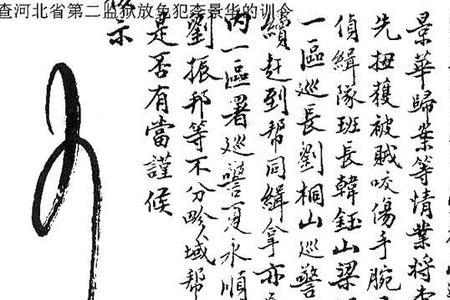 查河北省第二监狱放免犯李景华的训令
景華歸案等情業將李
先扭獲被賊咬傷手腕
偵緝隊班長韓鈺山梁
一區巡長劉桐山巡警
續赶到帮同緝拿亦
內一區署巡警夏永順
劉振邦等不分畛域帮
是否有當謹候
示